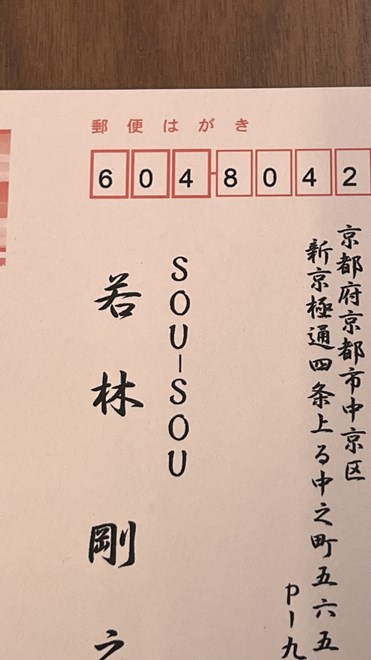 郵便はがき
604-8042
京都府京都市中京区
新京極通四条上る中之町五六五
P－九
SOU－SOU
若林 剛之